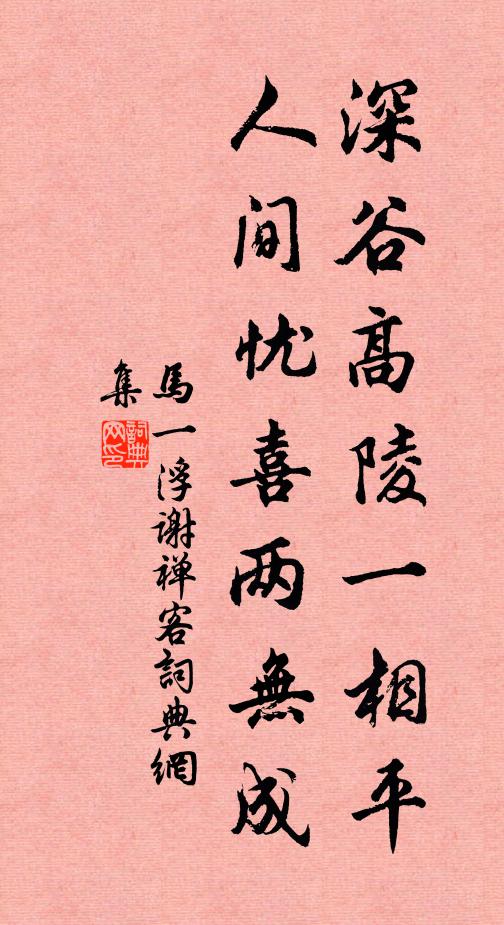 深谷高陵一相平
人间忧喜两無成
馬一浮謝禅客詞典網
集
詞典网印